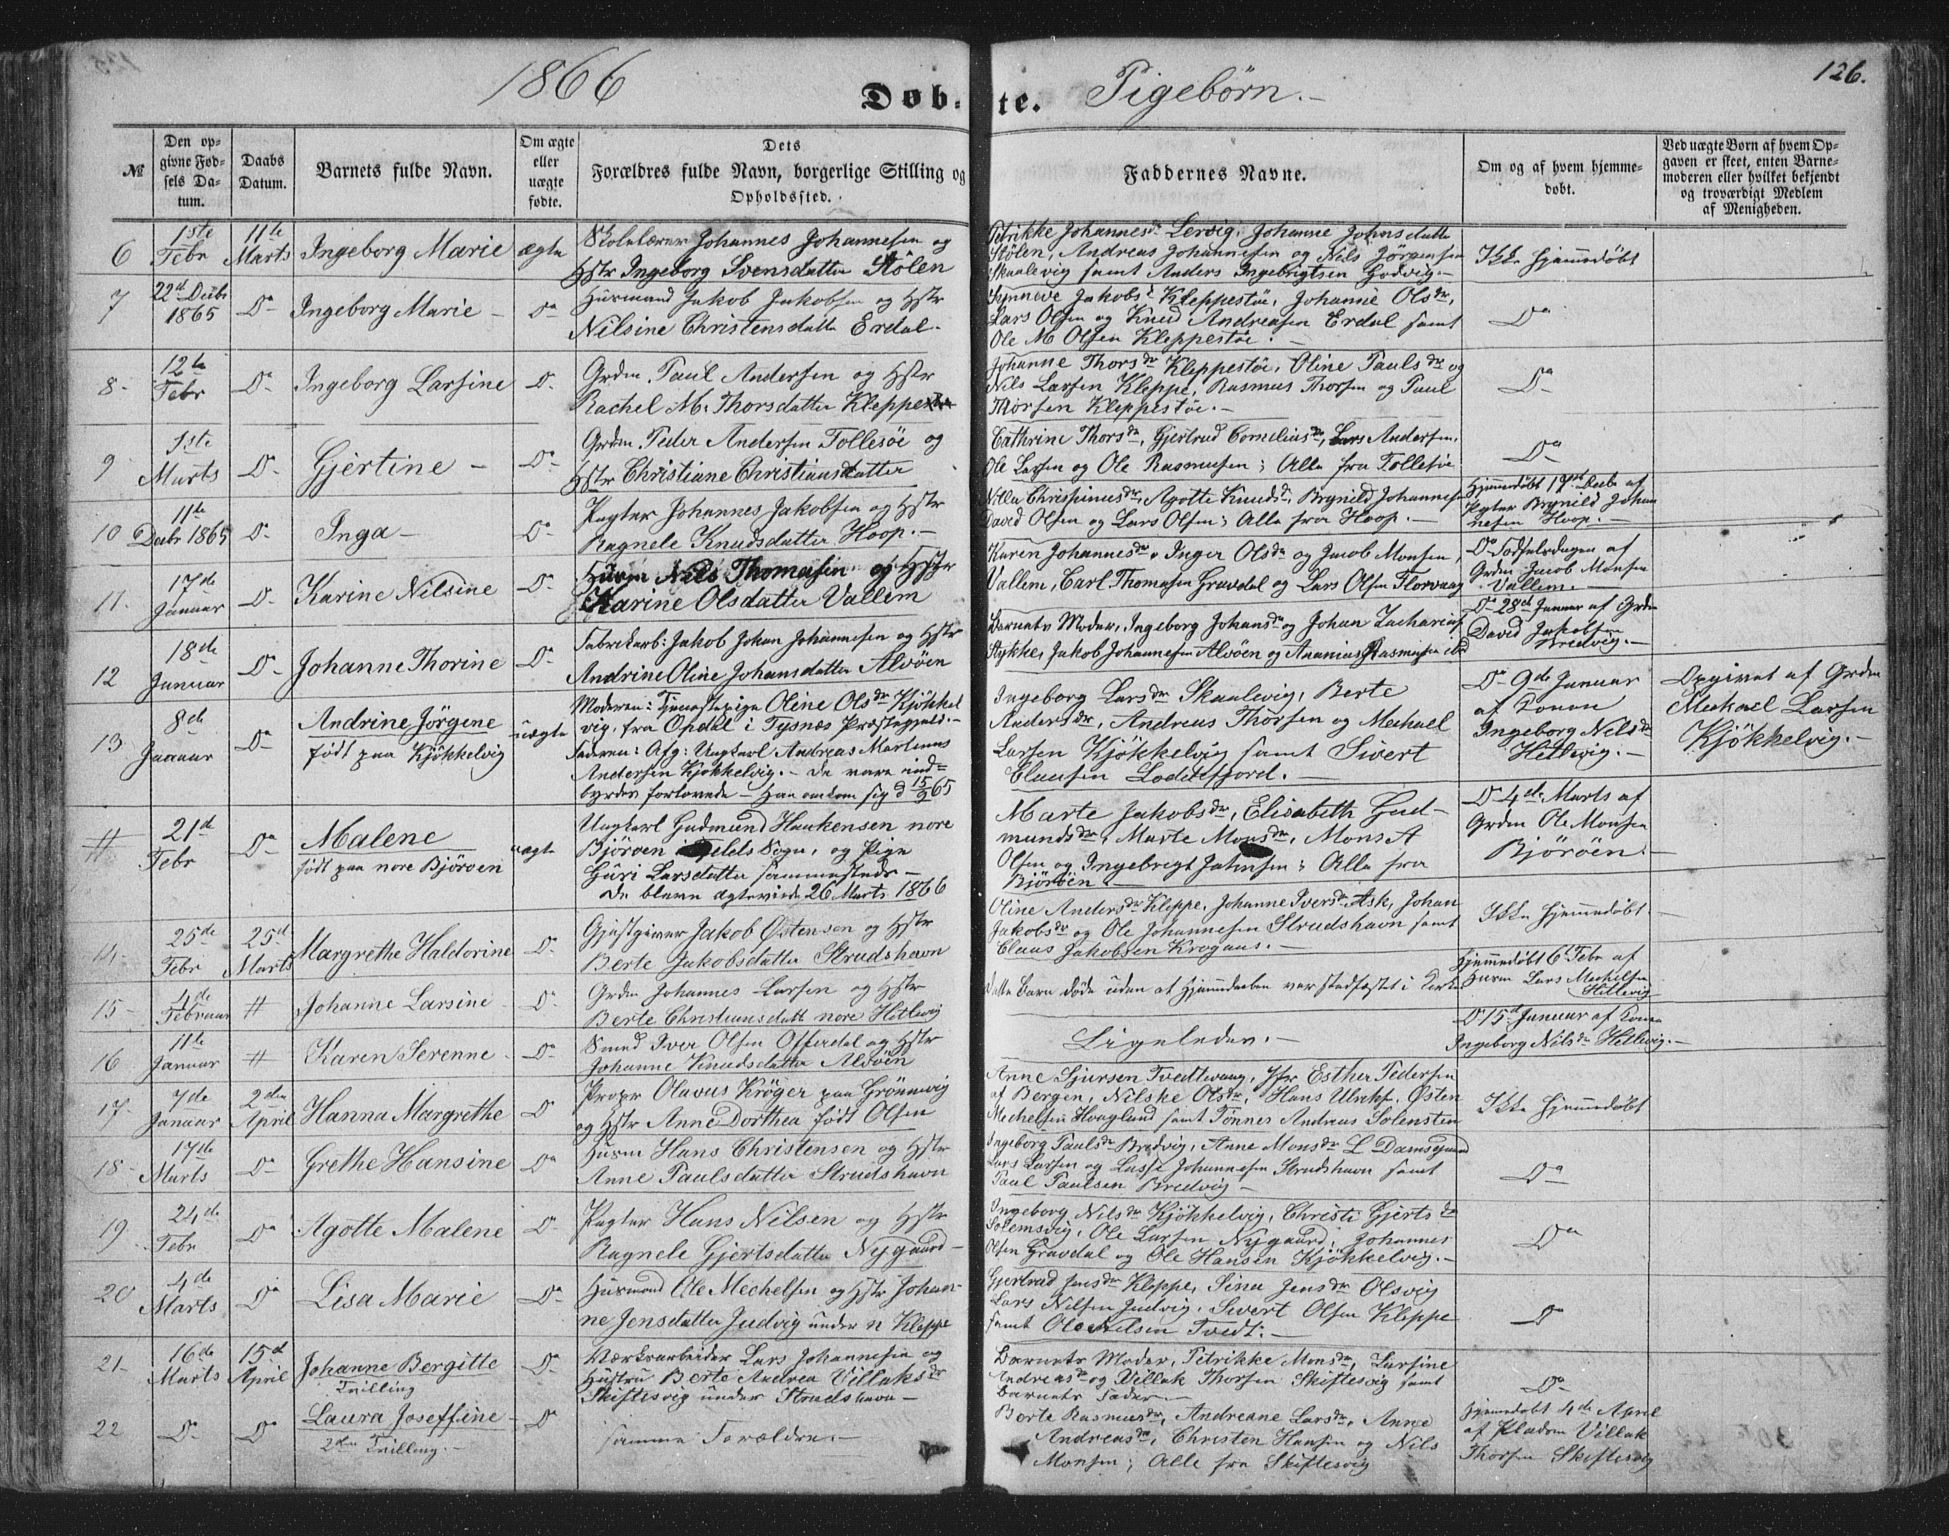 1866 Døb-te. Pigebørn.- 126.
№ | Den opgivne Fødsels Datum. | Daabs Datum. | Barnets fulde Navn. | Om ægte eller uægte fødte. | Dets Forældres fulde Navn, borgerlige Stilling og Opholdssted. | Faddernes Navne. | Om og af hvem hjemmedøbt. | Ved uægte Børn af hvem Opgaven er skeet, enten Barnemoderen eller hvilket bekjendt og troværdigt Medlem af Menigheden.
6 1ste Febr 11te Marts Ingeborg Marie ægte
Skolelærer Johannes Johannesen og
Hstr Ingeborg Svensdatter Stölen
Petrikke Johannesdr Lervig, Johanne Johnsdatter
Stölen, Andreas Johannesen og Nils Jörgensen
Skaalevig samt Anders Ingebrigtsen Godvig.-
Ikke hjemmedøbt
7 22d Decbr 1865 Do Ingeborg Marie- Do
Husmand Jakob Jakobsen og Hstr
Nilsine Christensdatter Erdal.
Synneve Jakobsdr Kleppestöe, Johanne Olsdr,
Lars Olsen og Knud Andreasen Erdal samt
Ole M Olsen Kleppestöe.
Do
8- 12te Febr Do Ingeborg Larsine Do
Grdm. Paul Andersen og Hstr
Rachel M. Thorsdatter Kleppe
Johanne Thorsdr Kleppestöe, Oline Paulsdr og
Nils Larsen Kleppe, Rasmus Thorsen og Paul
Thorsen Kleppestöe.-
Do
9 1ste Marts Do Gjertine- Do
Grdm. Peder Andersen Follesöe og
Hstr Christiane Christiansdatter
Cathrine Thorsdr, Gjertrud Corneliusdr, Lars Andersen,
Ole Larsen og Ole Rasmusen; Alle fra Follesöe
Do
10 11te Decbr 1865 Do Inga- Do
Pagter Johannes Jakobsen og Hstr
Ragnele Knudsdatter Hoop.-
Chrispinusdr, Agotte Knudsdr, Brynild Johannesen
David Olsen og Lars Olsen; Alle fra Hoop.-
Hjemmedøbt 17de Decbr af
Pagter Brynild Johan
nesen Hoop.-
11. 17de Januar Do Karine Nilsine Do
Husm Nils Thomasen og Hstr
Karine Olsdatter Vallem
Karen Johannesdr, Inger Olsdr og Jacob Monsen,
Vallem, Carl Thomasen Gravdal og Lars Olsen Florvaag
Do Födselsdagen af
Grdm Jacob Monsen
Vallem.-
12 18de Januar Do Johanne Thorine Do
Fabrikarb: Jakob Johan Johannesen og Hstr
Andrine Oline Johansdatter Alvöen
Barnets Moder, Ingeborg Johansdr og Johan Zacharias
Stykke, Jakob Johannesen Alvöen og Ananias Rasmusen
Do 28de Januar af Grdm
David Jakobsen
Bredvig.-
13. 8de Januar Do Andrine Jörgene uægte
Født paa Kjökkelvig
Moderen: Tjenestepige Oline Olsdr Kjökkel
vig, fra Opdal i Tysnæs Præstegjeld.-
Faderen: Afg: Ungkarl Andreas Martinus
Andersen Kjökkelvig.- De vare ind-
byrdes forlovede- Han omkom sig d 15/2 65
Ingeborg Larsdr Skaalevig, Berte
Andersdr, Andreas Thorsen og Mechael
Larsen Kjökkelvig samt Sivert
Clausen Loddefjord.
Do 9de Januar
af Konen
Ingeborg Nilsdr
Hetlevig.-
Opgivet af Grdm
Mechael Larsen
Kjökkelvig.-
# 21de Febr Do Malene uægte
født paa nore Björöen
Ungkarl Gudmund Haukensen nore
Björöen Fjelds Sogn, og Pige
Guri Larsdatter sammesteds-
De bleven ægteviede 26 Marts 1866
Marte Jakobsdr, Elisabeth Gud-
mundsdr, Marte Monsdr, Mons A
Olsen og Ingebrigt Johnsen; Alle fra
Björöen.-
Do 4de Marts af
Grdm Ole Monsen
Björöen.
14- 25de Febr 25de Marts Margrethe Haldorine Do
Gjæstgiver Jakob Østensen og Hstr
Berte Jakobsdatter Strudshavn
Oline Andersdr Kleppe, Johanne Iversdr Ask, Johan
Jakobsdr og Ole Johannesen Strudshavn samt
Claus Jakobsen Krogaas.-
Ikke hjemmedøbt.-
15- 4de Februar # Johanne Larsine- Do
Grdm Johannes Larsen og Hstr
Berte Christiansdatt nore Hetlevig
Dette Barn døde uden at Hjemmedaaben var stadfæstet i Kirken
Hjemmedøbt 6 Febr af
Husm Lars Mechelsen
Hetlevig
16 11te Januar # Karen Serenne- Do
Smed Iver Olsen Offerdal og Hstr
Johanne Knudsdatter Alvöen
Ligeledes.-
Do 15de Januar af Konen
Ingeborg Nilsdr Hetlevig.-
17- 7de Januar 2den April Hanna Margrethe Do
Propr Olavus Kröger paa Grönnevig
og Hstr Anne Dorthea født Olsen
Anne Sjursen Tvedtevaag, Jfr Esther Pedersen
af Bergen, Nilske Olsdr, Hans Ulrikss, Østen
Mechelsen Haagland samt Tönnes Andreas Solensten
Ikke hjemmedøbt
18- 17de Marts Do Grethe Hansine Do
Husm Hans Christensen og Hstr
Anne Paulsdatter Strudshavn
Ingeborg Paulsdr Bredvig, Anne Monsdr L Damsgaard
Lars Larsen og Lasse Johannesen Strudshavn samt
Paul Paulsen Bredvig-
Do
19. 24de Febr Do Agotte Malene Do
Pagter Hans Nilsen og Hstr
Ragnele Gjertsdatter Nygaard-
Ingeborg Nilsdr Kjökkelvig, Christi Gjertsdr
Solemsvig, Ole Larsen Nygaard, Johannes
Olsen Gravdal og Ole Hansen Kjökkelvig.-
Do
20 4de Marts Do Lisa Marie Do
Husmand Ole Mechelsen og Hstr Johan-
ne Jensdatter Judvig under n Kleppe
Gjertrud Jensdr Kleppe, Sina Jensdr Olsvig
Lars Nilsen Judvig, Sivert Olsen Kleppe
samt Ole Nilsen Tvedt.-
Do
21- 16de Marts 15de April Johanne Bergitte Do
Tvilling
Værksarbeider Lars Johannesen og
Hustru Berte Andrea Villaksdr
Skiftesvig under Strudshavn-
Barnets Moder, Petrikke Monsdr, Larsine
Andreasdr og Villak Thorsen Skiftesvig samt
Barnets Fader-
Do
22 Do Do Laura Joseffine- Do
2den Tvilling.-
samme Forældre.-
Berte Rasmusdr, Andreane Larsdr, Anne
Andreasdr, Christen Hansen og Nils
Monsen; Alle fra Skiftesvig
Hjemmedøbt 4de April
af Villak
Thorsen Skiftesvig